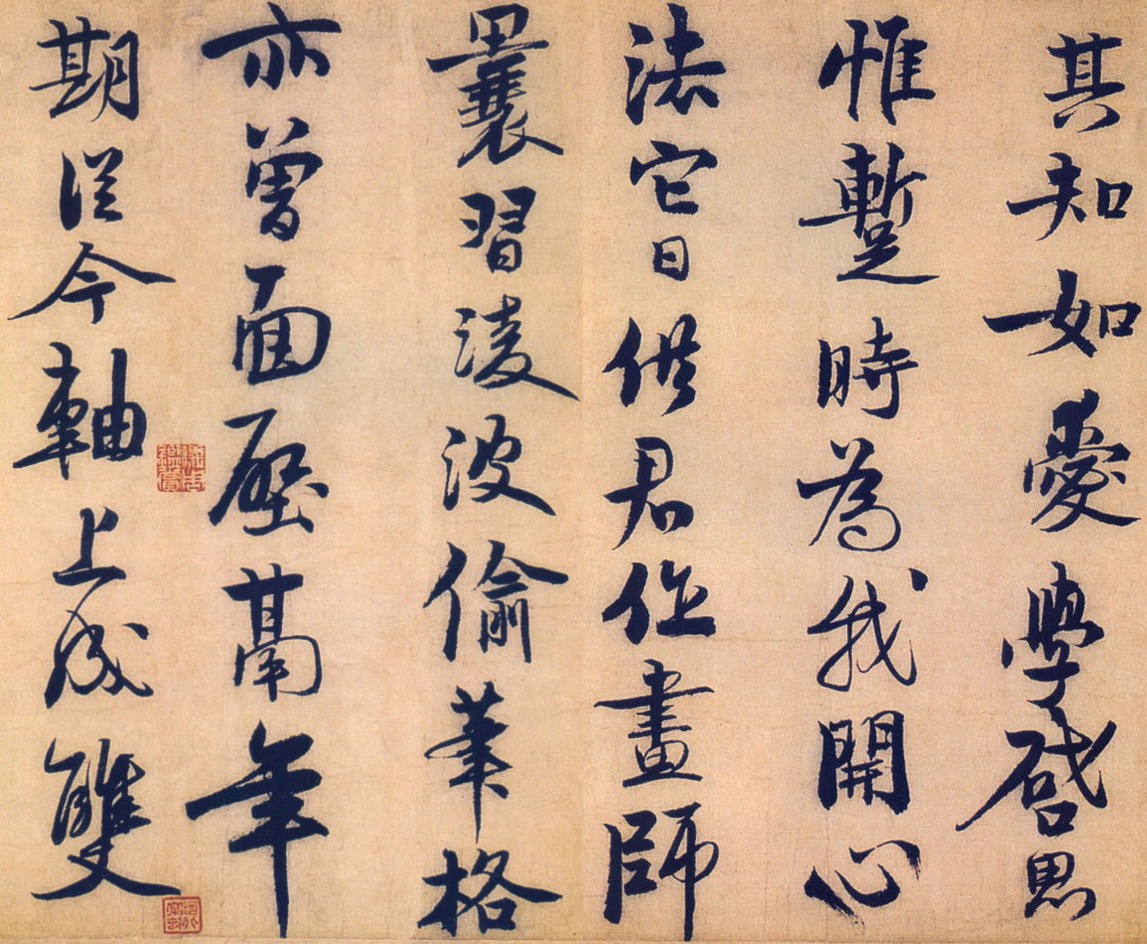 其知如愛學啓思
惟蹔時為我開心
法它日供君作畫師
曩習淩波偷筆格
亦曾面壁年
期從今軸上成雙